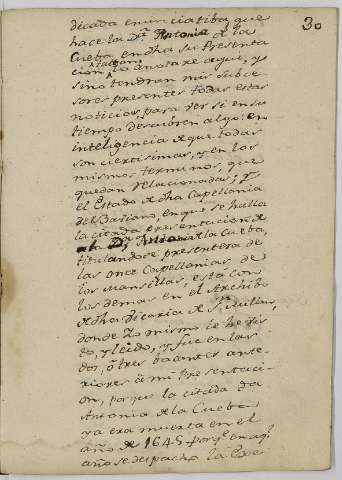 30
dicada enunciatiba, que
hace la Dª. Antonia de la
Cueba en dha su Presenta
cion, lo anotare aqui, y
si no tendran mis subce
sores presentes todas estas
noticias, para ver si en su
tiempo descubren algo: en
inteligencia de que todas
son ciertisimas, y en los
mismos terminos, que
quedan relacionadas; y
el Estado de dha Capellania
del Bartano, en que se halla
la citada presentacion de
Dª. Antonia de la Cueba,
titulandose presentera de
las once Capellanias de
los Mansillas, está con
los demas en el Archibo
de dha Vicaria de Sn.
donde Yo mismo le he vis
to, y leido, y fue en las
dos, o tres bacantes ante
riores á mi Presentaci
on, porque la citada Da
Antonia de la Cueba
ya era muerta en el
año de 1645 porqe. en aql.
año se despacho la Exe